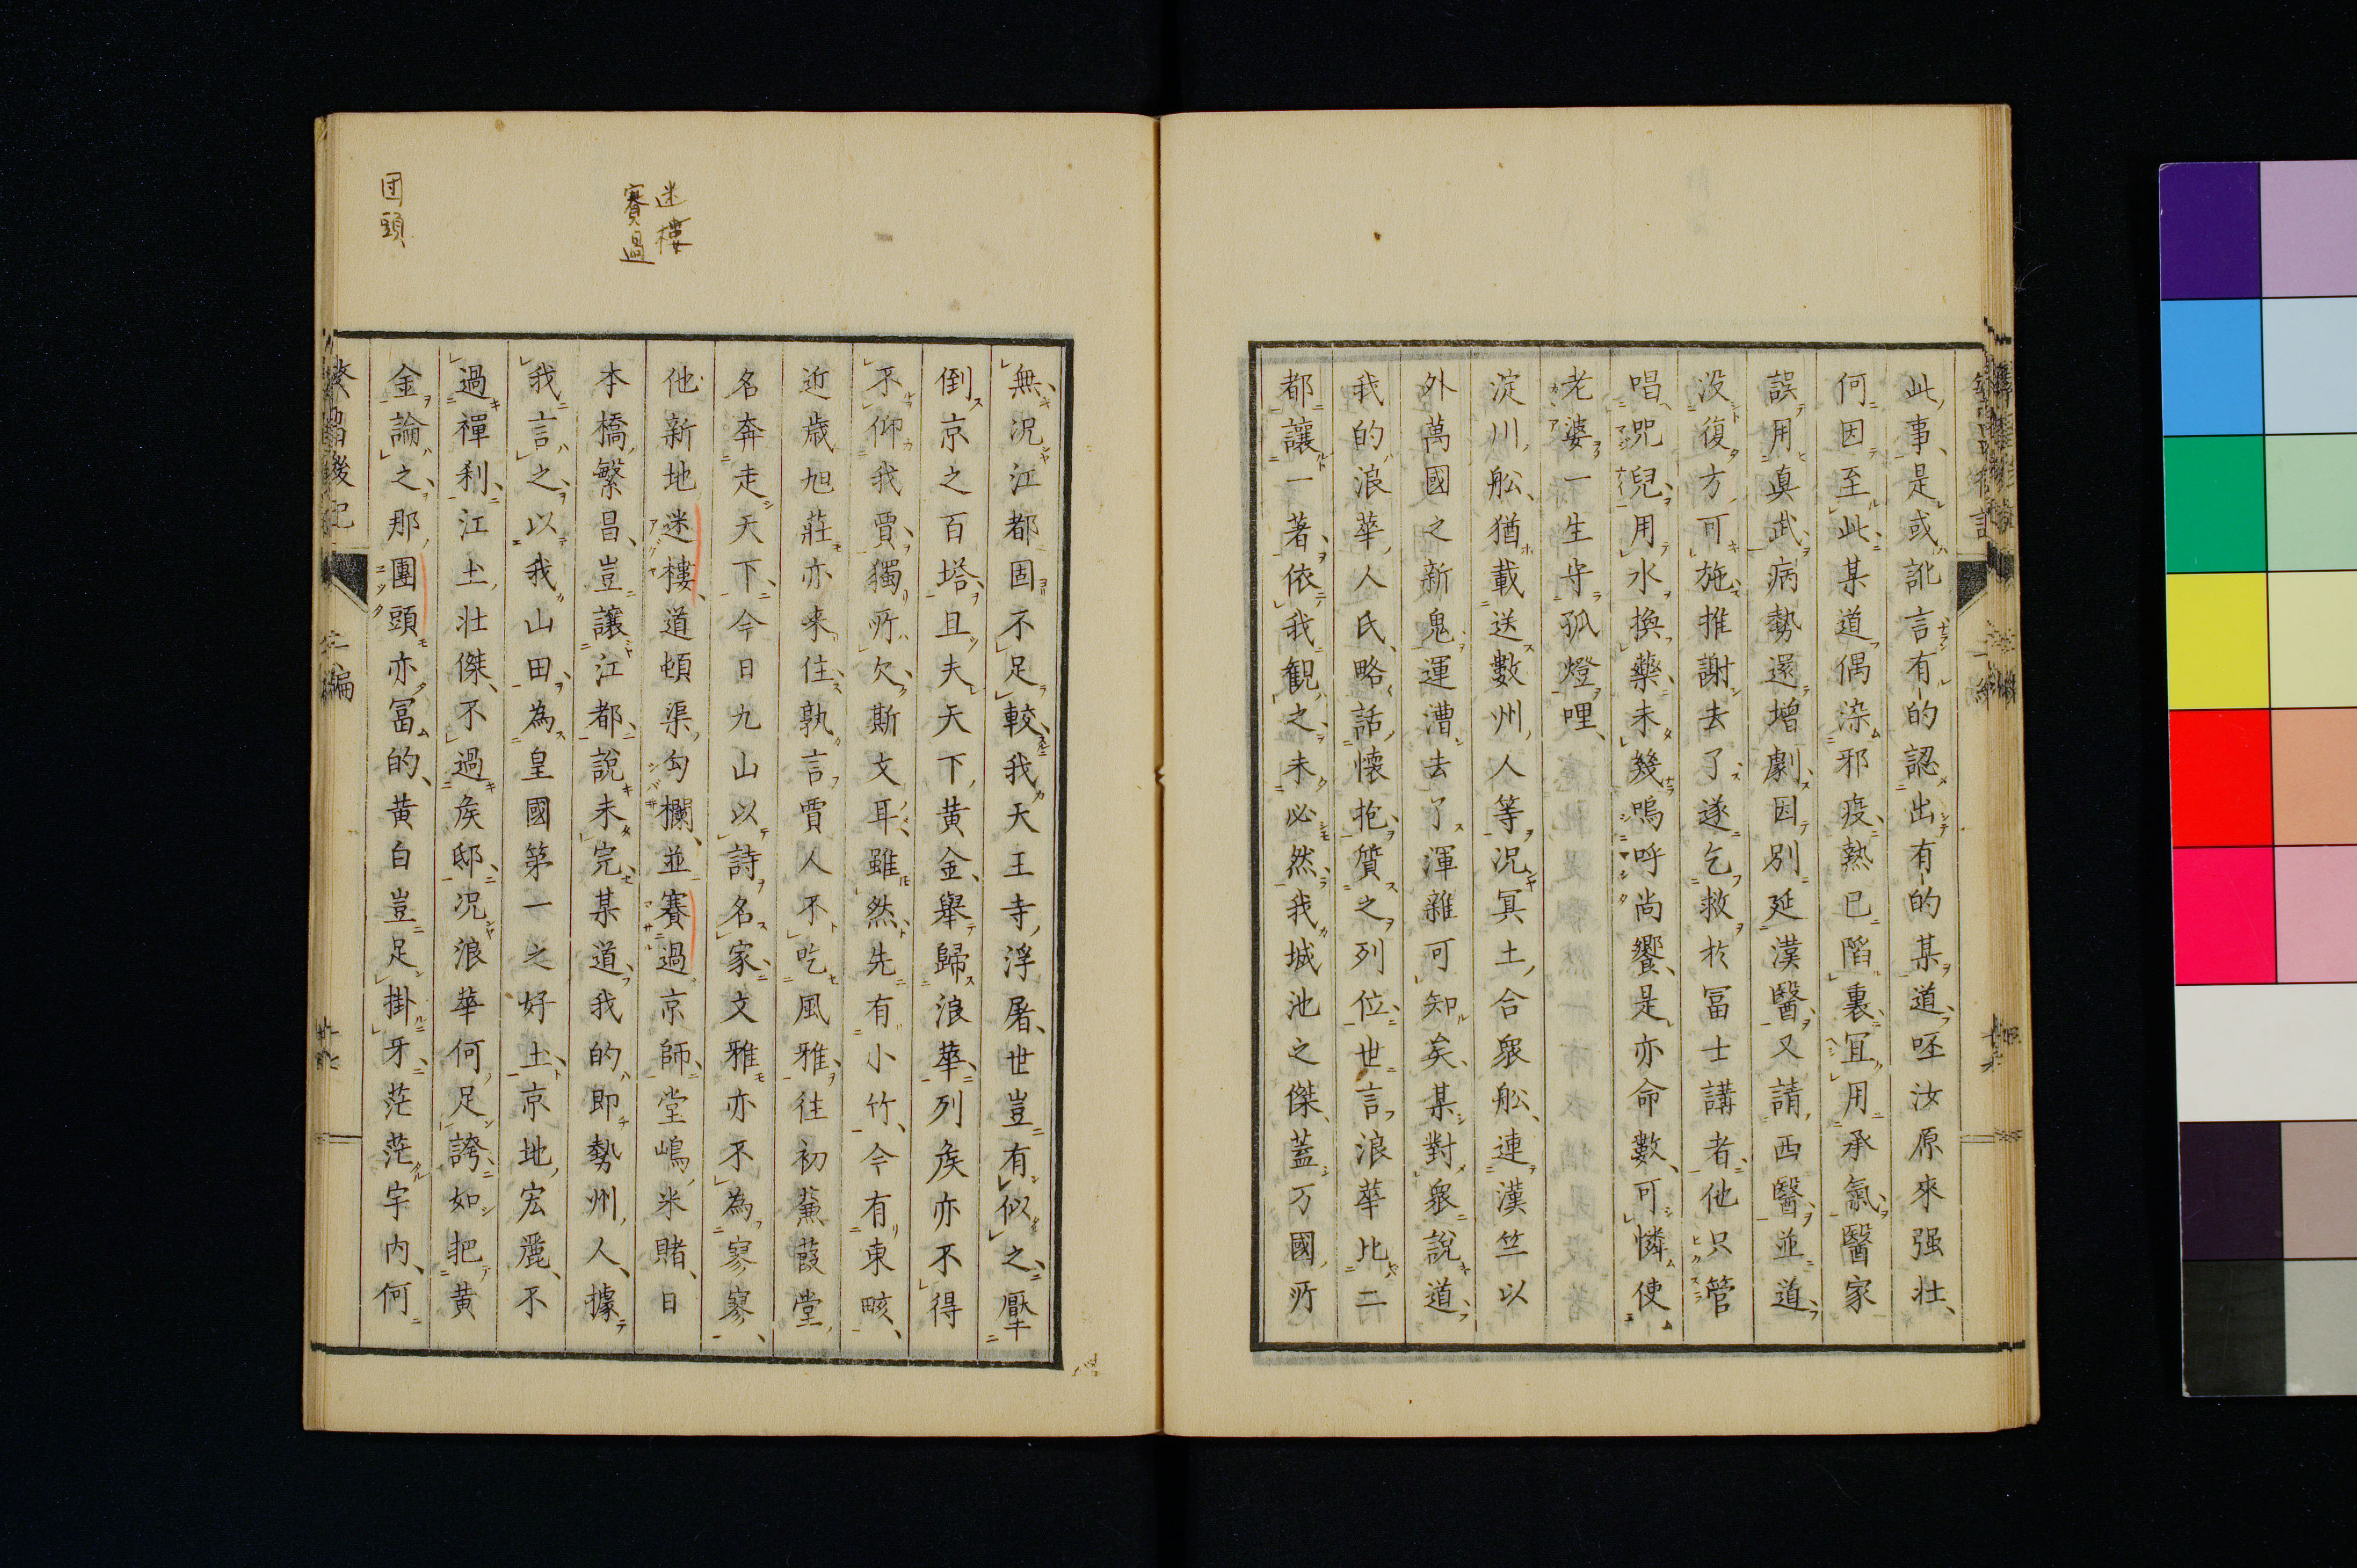 此事、是或訛言有的認出有的某道、呸汝原來强壮、
何因至此、某道偶染邪疫、熱已陷裏、冝用承氣、醫家
誤用真武、病勢還増劇、因別延漢醫、又請西醫、並道、
没復方可施、推謝去了、遂乞救於冨士講者、他只管
唱咒兒、用水換藥、未幾嗚呼尚饗、是亦命數、可憐使
老婆一生守孤燈哩、
淀川舩、猶載送數州人等、况冥土合衆舩、連漢竺以
外萬國之新鬼運漕去了、渾雜可知矣、某對衆説道、
我的浪華人氏、略話懐抱、質之列位、世言浪華比二
都讓一著、依我観之、未必然、我城池之傑、蓋万國所
無、况江都固不足較、我天王寺浮屠、世豈有似之、壓
倒京之百塔、且夫天下黄金、舉歸浪華、列矦亦不得
不仰我賈、獨所欠斯文耳、雖然先有小竹、今有東畡、
近歳旭莊亦來住、孰言賈人不吃風雅、往初蒹葭堂
名奔走天下、今日九山以詩名家、文雅亦不為寥寥、
他新地迷樓、道頓渠勾欄、並賽過京師、堂嶋米賭、日
本橋繁昌、豈讓江都、説未完、某道、我的即勢州人、據
我言之、以我山田、為皇國第一之好土、京地宏麗、不
過禪刹、江土壮傑、不過矦邸、况浪華何足誇、如把黄
金論之、那團頭亦冨的、黄白豈足掛牙、茫茫宇内、何
迷樓
賽過
団頭